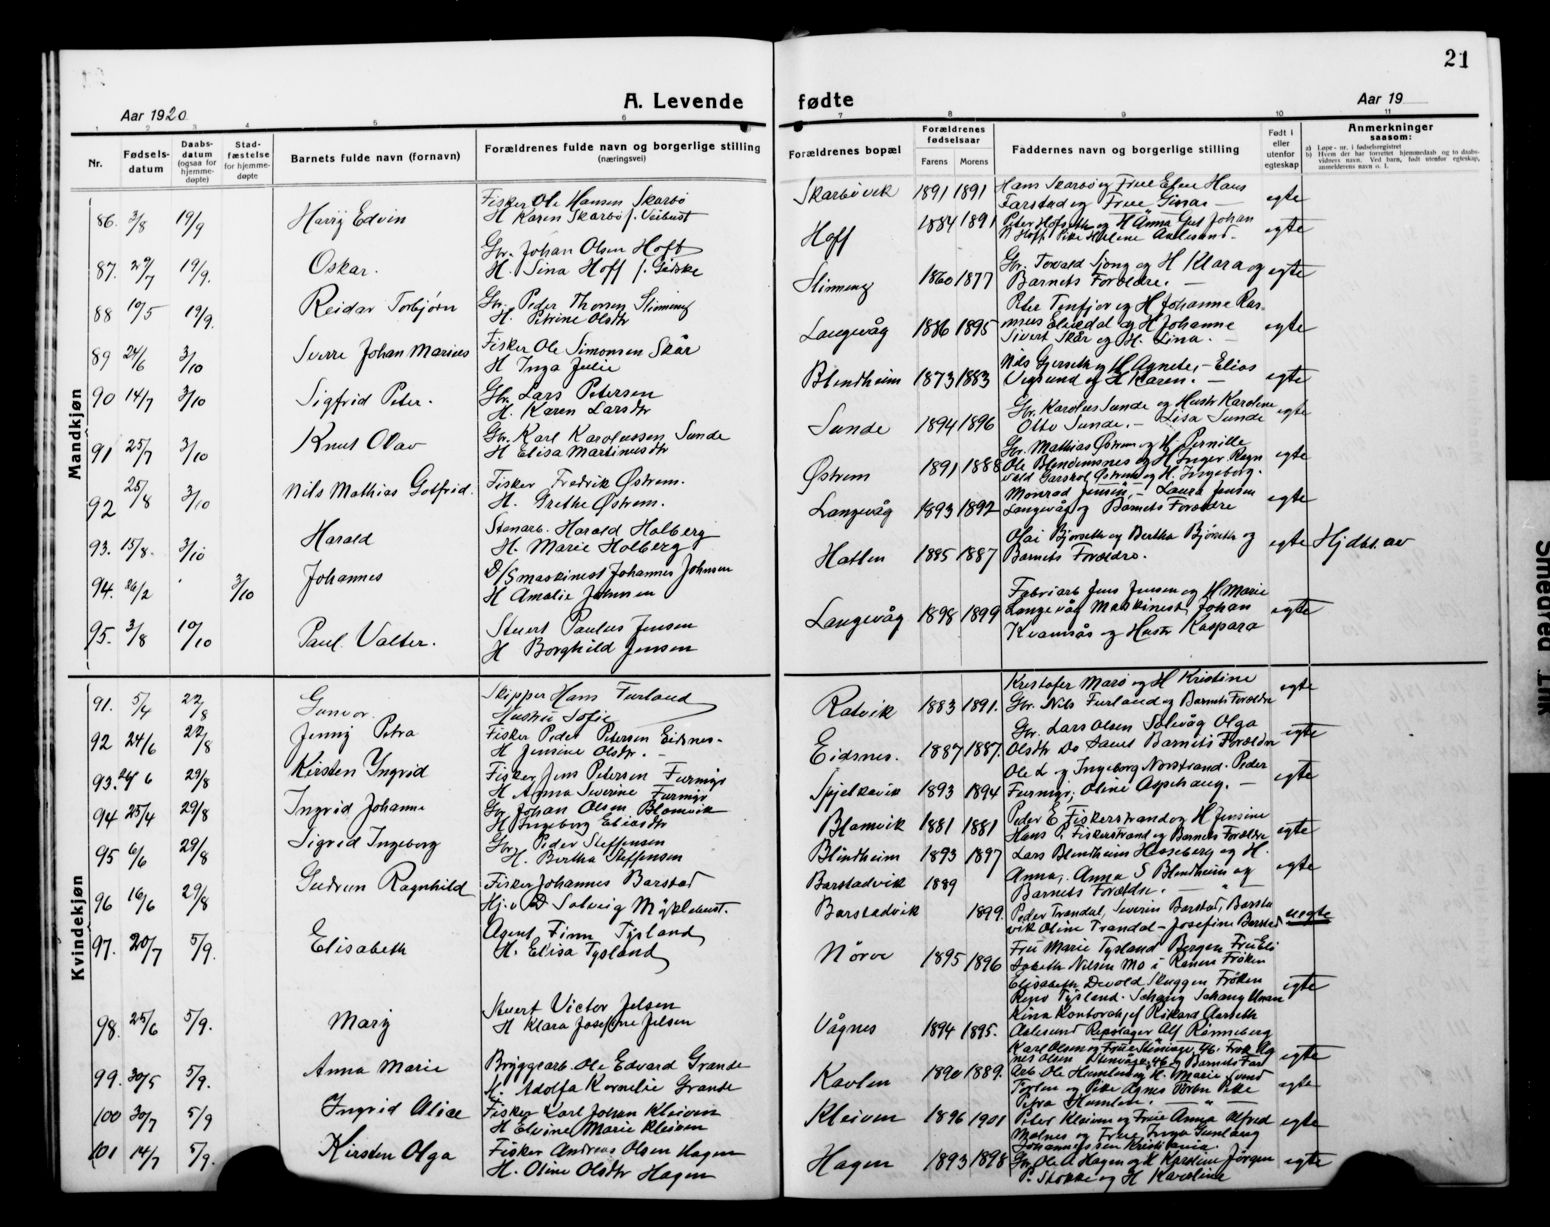 21
A. Levende fødte
Aar 1920
Aar 19
1 2 3 4 5 6 7 8 9 10 11
Nr. Fødsels-datum Daabs-datum (ogsaa for hjemme-døpte) Stad-fæstelse for hjemme-døpte Barnets fulde navn (fornavn) Forældrenes fulde navn og borgerlige stilling (næringsvei)
Forældrenes bopæl Forældrenes fødselsaar Farens Morens Faddernes navn og borgerlige stilling Født i eller utenfor egteskap Anmerkninger saasom:
a) Løpe-nr. i fødselsregistret
b) Hvem der har forrettet hjemmedaab og to daabs-vidners navn. Ved barn, født utenfor egteskap, anmelderens navn o. l.
Mandkjøn
86. 3/8 19/9 Harry Edvin Fisker Ole Hansen Skarbø
H Karen Skarbø f. Veibust
Skarbøvik 1891 1891 Hans Skarbø og Frue Elen Hans
Farstad og Frue Gina egte
87. 29/7 19/9. Oskar. Gbr. Johan Olsen Hoff
H. Sina Hoff f. Gidske
Hoff 1884 1891 Peter Hofseth og H Anna Gut Johan
Hoff Pike Helene Aalesund. egte
88 10/5 19/9. Reidar Torbjørn Gbr. Peder Thorsen Slinning
H. Petrine Olsdtr
Slinning 1860 1877 Gbr. Torvald Sjong og H Klara og
Barnets Forældre. egte
89 24/6 3/10 Sverre Johan Marius Fisker Ole Simonsen Skår
H Inga Julie
Langevåg 1886 1895 Peter Tenfjor og H Johanne Ras-
mus og H Johanne
Sivert Skår og H. Lina. egte
90 14/7 3/10 Sigfrid Peter. Gbr. Lars Petersen
H. Karen Larsdtr
Blindheim 1873 1883 Nils Gjerseth og H Agnete, Elias
Vegsund og H Karen. egte
91 25/7 3/10 Knut Olav Gbr. Karl Karolussen Sunde
H Elisa Martinusdtr
Sunde 1894 1896 Gbr. Karolus Sunde og Hustr Karoline
Otto Sunde. Lisa Sunde egte
92 25/8 3/10 Nils Mathias Gotfrid. Fisker Fredrik Østrem.
H. Grethe Østrem.
Østrem 1891 1888 Gbr. Mathias Østrem og H. Pernille
Ole Blindemsnes og H Inger Ragn
vald Garshol Østrem og H. Ingeborg. egte
93. 15/8. 3/10 Harald Stenarb. Harald Holberg
H. Marie Holberg
Langevåg 1893 1892 Monrad Jensen, Laura Jensen
Langevåg og Barnets Forældre egte
94. 26/2 3/10 Johannes D/S maskinist Johannes Johnsen
H Amalie Johnsen
Hatlen 1885 1887 Olai Bjørseth og Bertha Bjørseth og
Barnets Forældre. egte Hjdbt. av
95. 3/8 10/10 Paul Valter. Stuert Paulus Jensen
H Borghild Jensen
Langevåg 1898 1899 Fabriarb Jens Jensen og H Marie
Langevåg Maskinist Johan
Kvamsås og Hustr Kaspara egte
Kvindekjøn
91. 5/4 22/8 Gunvor Skipper Hans Furland
Hustru Sofie
Ratvik 1883 1891. Kristofer Marø og H Kristine
Gbr. Nils Furland og Barnets Forældre egte
92 24/6 22/8 Jenny Petra Fisker Peder Petersen Eidsnes.
H Jensine Olsdtr.
Eidsnes. 1887 1887. Gbr. Lars Olsen Solevåg Olga
Olsdtr Do samt Barnets Forældre egte
93. 24/6 29/8 Kirsten Yngvid Fisker Jens Petersen Furmyr
H Anna Severine Furmyr
Spjelkavik 1893 1894 Ole L og Ingeborg Norstrand. Peder
Furmyr, Oline Aspehaug. egte
94 25/4 29/8 Ingrid Johanne Gbr Johan Olsen Blomvik
H Ingeborg Eliasdtr
Blomvik 1881 1881 Peder E Fiskerstrand og H Jensine
Hans P. Fiskerstrand og Barnets Forældre egte
95 6/6 29/8 Sigrid Ingeborg Gbr. Peder Steffensen
H. Bertha Steffensen
Blindheim 1893 1897 Lars Blindheim Hesseberg og H.
Anna, Anna S Blindheim og
Barnets Forældre. egte
96 16/6 29/8 Gudrun Ragnhild Fisker Johannes Barstad
Hj. v D Solveig Myklebust.
Barstadvik 1889
Barstadvik 1899. Peder Trandal, Severin Barstad, Barsta
vik Oline Trandal - Josefine Barstad uegte
97. 20/7 5/9. Elisabeth Agent Finn Tysland
H. Elisa Tysland
Nørve 1895 1896 Fru Marie Tysland Bergen Fru Eli
sabeth Nilsen Mo i Ranen Frøken
Elisabeth Devold Skuggen Frøken
Repo Tysland. egte
98. 25/6 5/9. Mary Stuert Victor Jelsen
H Klara Josefine Jelsen
Vågnes 1894 1895. Kina Kontorchef Rikard Aarseth
Aalesund Repslager Alf Rønneberg
99. 30/5 5/9. Anna Marie Bryggearb. Ole Edvard Grande
H. Adolfa Kornelie Grande
Kavlen 1890 1889. egte
Arb Ole Humlen og H. Marie
og Pike Agnes Pike
Petra Humlen. egte
100 30/7 5/9 Ingrid Alice Fisker Karl Johan Kleiven
H Elvine Marie Kleiven
Kleiven 1896 1901 Peter Kleiven og Frue Anna Alfred
Malnes og Frue, Inga
Johannessen Kristiania. egte
101 14/7 5/9. Kirsten Olga Fisker Andreas Olsen Hagen
H. Oline Olsdtr Hagen
Hagen 1893 1898 Gbr. Ole A Hagen og H Karoline Jørgen
P. Stokke og H Karoline egte
Smedred Tlk